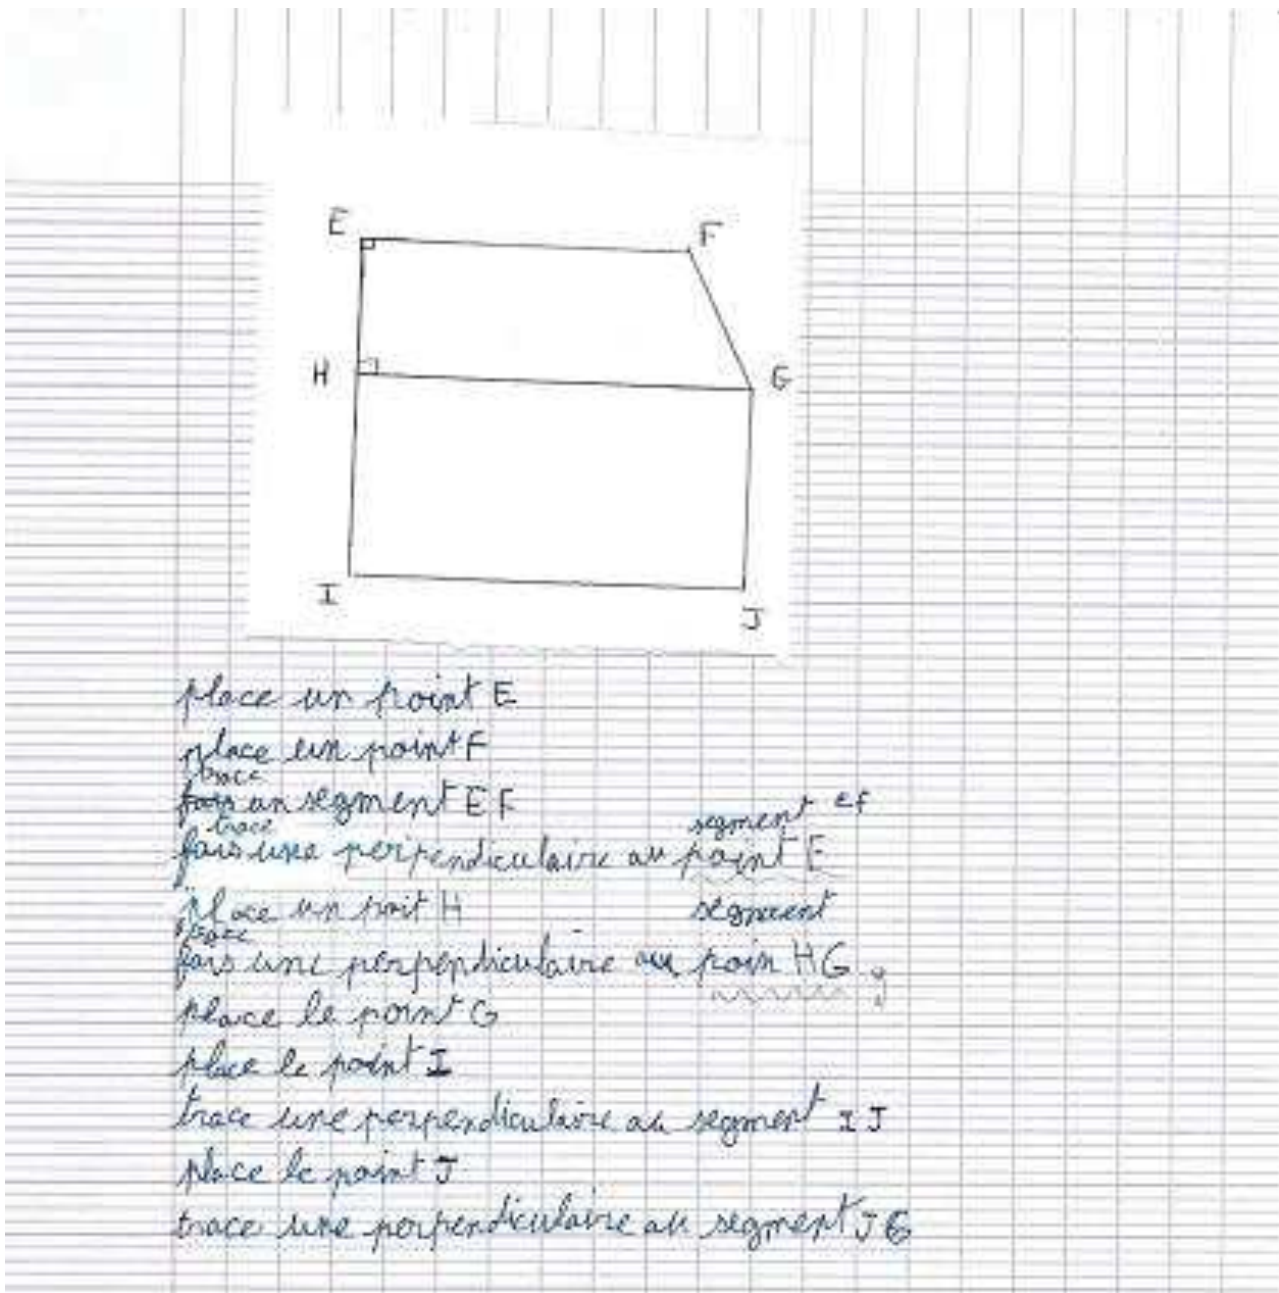 E
F
H
G
I
J
place un point E
place un point F
trace
fais un segment EF
trace
segment EF
fais une perpendiculaire au point E
place un poit H
segment
trace
fais une perpendiculaire au poin HG
place le point G
place le point I
trace une perpendiculaire au segment IJ
place le point J
trace une perpendiculaire au segment JG